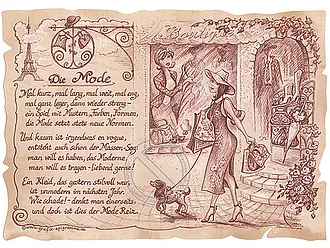 Boutique
Die Mode
Mal kurz, mal lang, mal weit, mal eng,
mal ganz leger, dann wieder streng –
ein Spiel mit Mustern, Farben, Formen,
die Mode setzt stets neue Normen.
Und kaum ist irgendwas en vogue,
entsteht auch schon der Massen-Sog:
man will es haben, das Moderne,
man will es tragen – liebend gerne!
Ein Kleid, das gestern stilvoll war,
ist unmodern im nächsten Jahr.
Wie schade! – denkt man einerseits,
und doch ist dies der Mode Reiz.